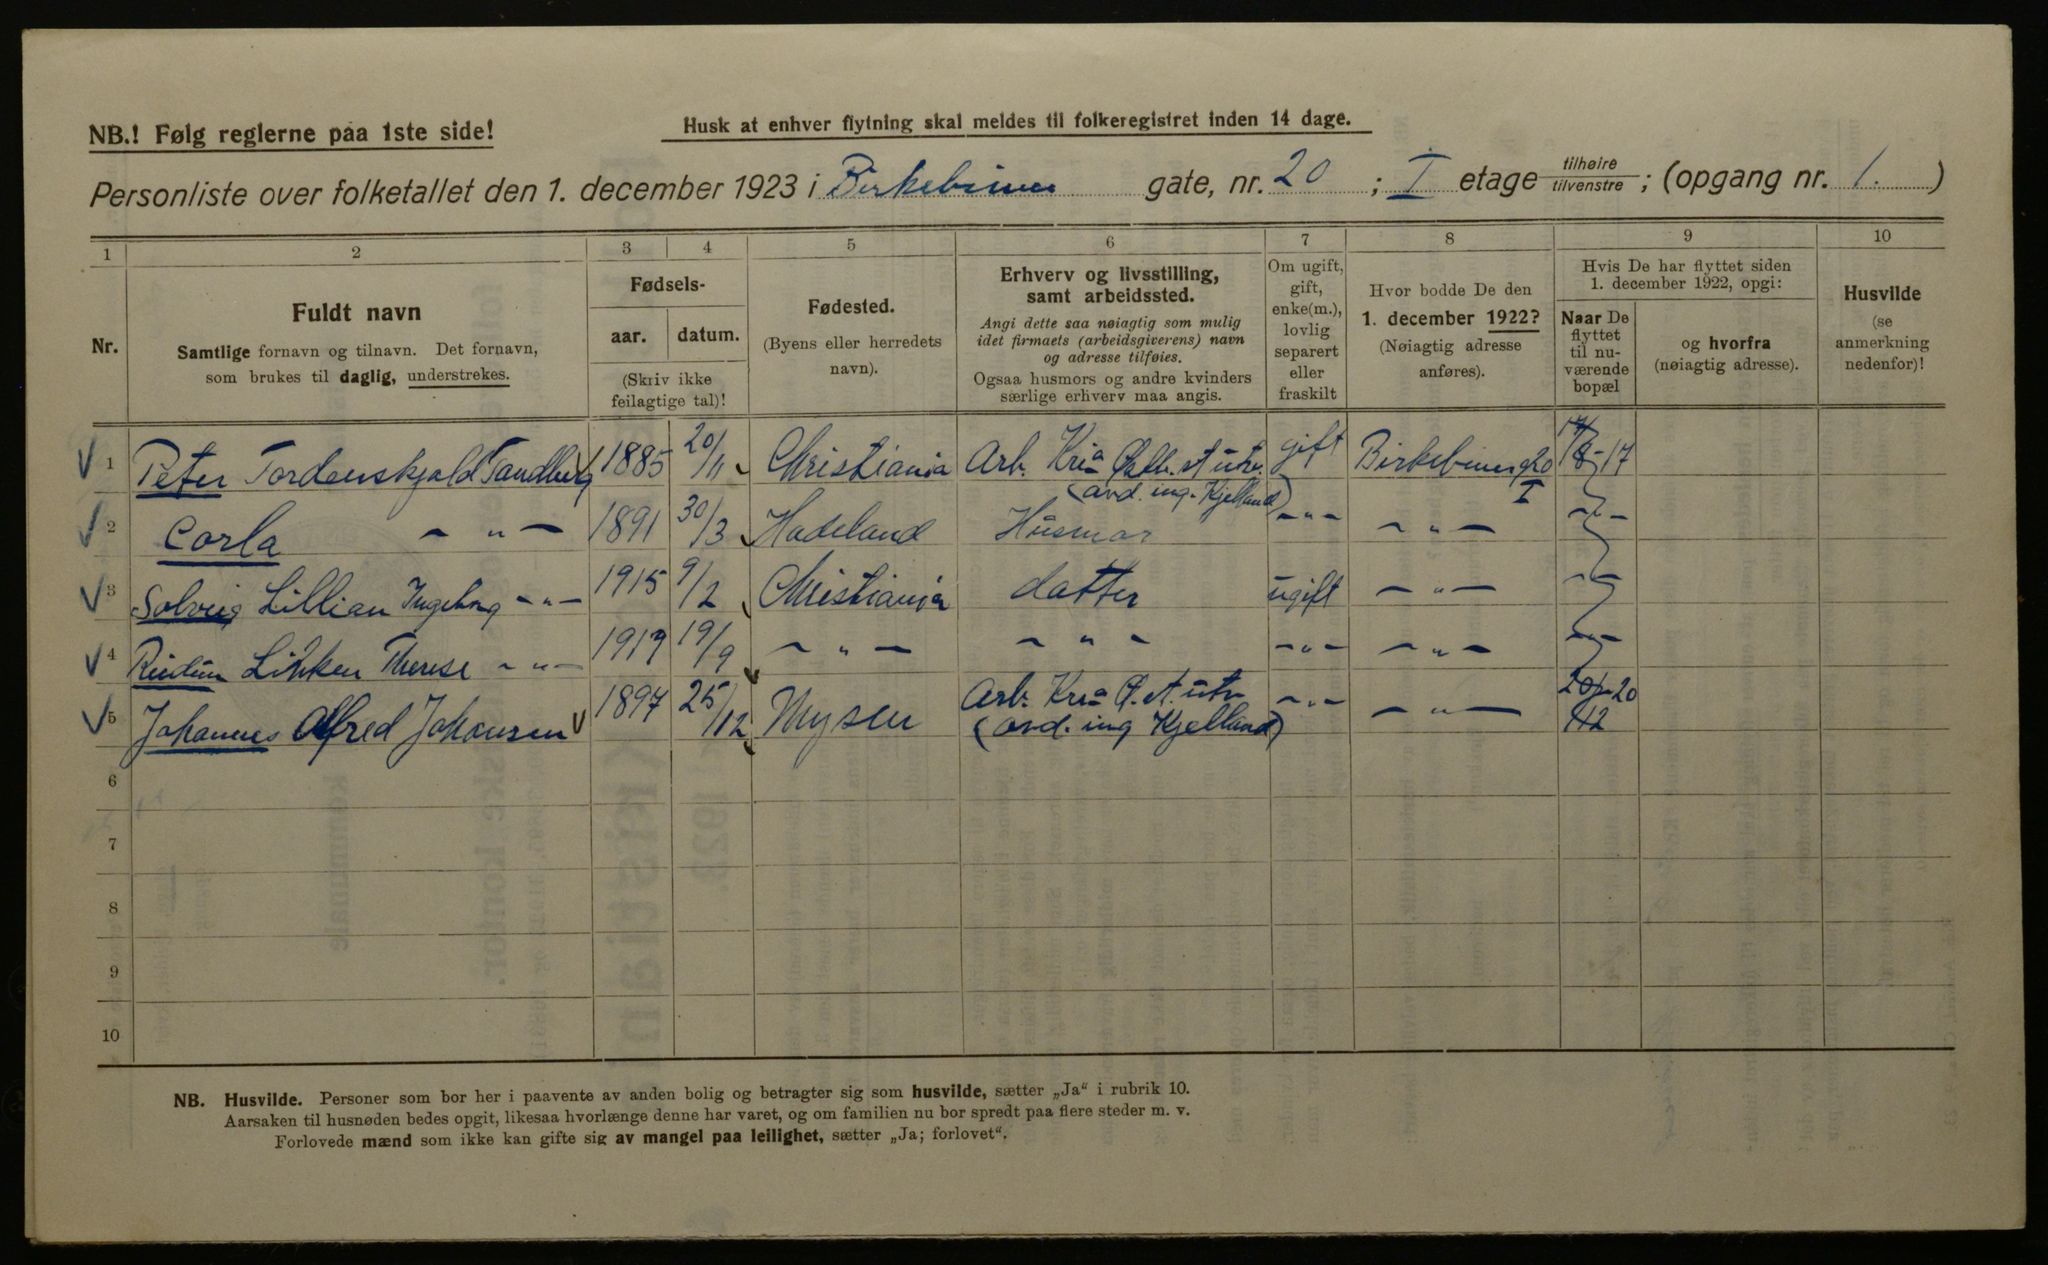 NB.! Følg reglerne paa 1ste side!
Husk at enhver flytning skal meldes til folkeregistret inden 14 dage.
Personliste over folketallet den 1. december 1923 i Birkebiner gate, nr. 20 ; I etage tilhøire tilvenstre ; (opgang nr. 1. )
1 2 3 4 5 6 7 8 9 10
Nr.
Fuldt navn
Samtlige fornavn og tilnavn. Det fornavn,
som brukes til daglig, understrekes.
Fødsels-
aar. datum.
(Skriv ikke
feilagtige tal)!
Fødested.
(Byens eller herredets
navn).
Erhverv og livsstilling,
samt arbeidssted.
Angi dette saa nøiagtig som mulig
idet firmaets (arbeidsgiverens) navn
og adresse tilføies.
Ogsaa husmors og andre kvinders
særlige erhverv maa angis.
Om ugift,
gift,
enke(m.),
lovlig
separert
eller
fraskilt
Hvor bodde De den
1. december 1922?
(Nøiagtig adresse
anføres).
Hvis De har flyttet siden
1. december 1922, opgi:
Naar De
flyttet
til nu-
værende
bopæl
og hvorfra
(nøiagtig adresse).
Husvilde
(se
anmerkning
nedenfor)!
1 Peter Tordenskjold Tandberg 1885 20/11 Christiania Arb. Kria st utv. gift Birkebiner g 20 17
(avd. ing. Kjelland) I
2 Corla - " - 1891 30/3 Hadeland Husmor - " - - " - - " -
3 Solveig Lillian Ingeborg - " - 1915 9/2 Christiania datter ugift - " - - " -
4 Reidun Therese - " - 1917 19/9 - " - - " - - " - - " - - " -
5 Johannes Alfred Johansen 1897 25/12 Mysen Arb. Kria st. utv - " - - " - 20/12 20
(avd. ing Kjelland)
6
7
8
9
10
NB. Husvilde. Personer som bor her i paavente av anden bolig og betragter sig som husvilde, sætter „Ja“ i rubrik 10.
Aarsaken til husnøden bedes opgit, likesaa hvorlænge denne har varet, og om familien nu bor spredt paa flere steder m. v.
Forlovede mænd som ikke kan gifte sig av mangel paa leilighet, sætter „Ja; forlovet“.